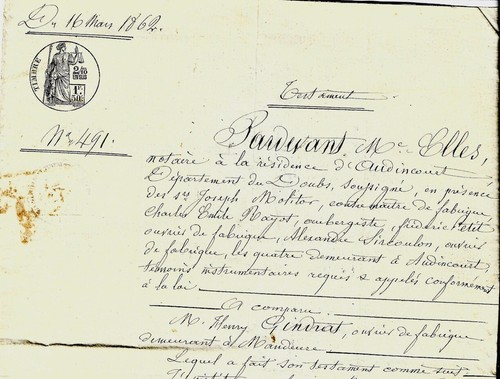 Du 16 Mars 1862.
TIMBRE
2/10
EN SUS
1F.
50c
Testament
No 491.
Pardevant Me Elles,
notaire à la résidence d'Audincourt
Département du Doubs, soussigné, en présence
des srs Joseph Molitor, contremaître de fabrique
Charles Emile Mayot, aubergiste, Frédéric
ouvrier de fabrique, Alexandre Siscoulon, ouvrier
de fabrique, les quatre demeurant à Audincourt,
témoins instrumentaires requis & appelés conformément
à la loi
A comparu
Mr Henry Gindrat, ouvrier de fabrique
demeurant à Mandeure
Lequel a fait son testament comme suit